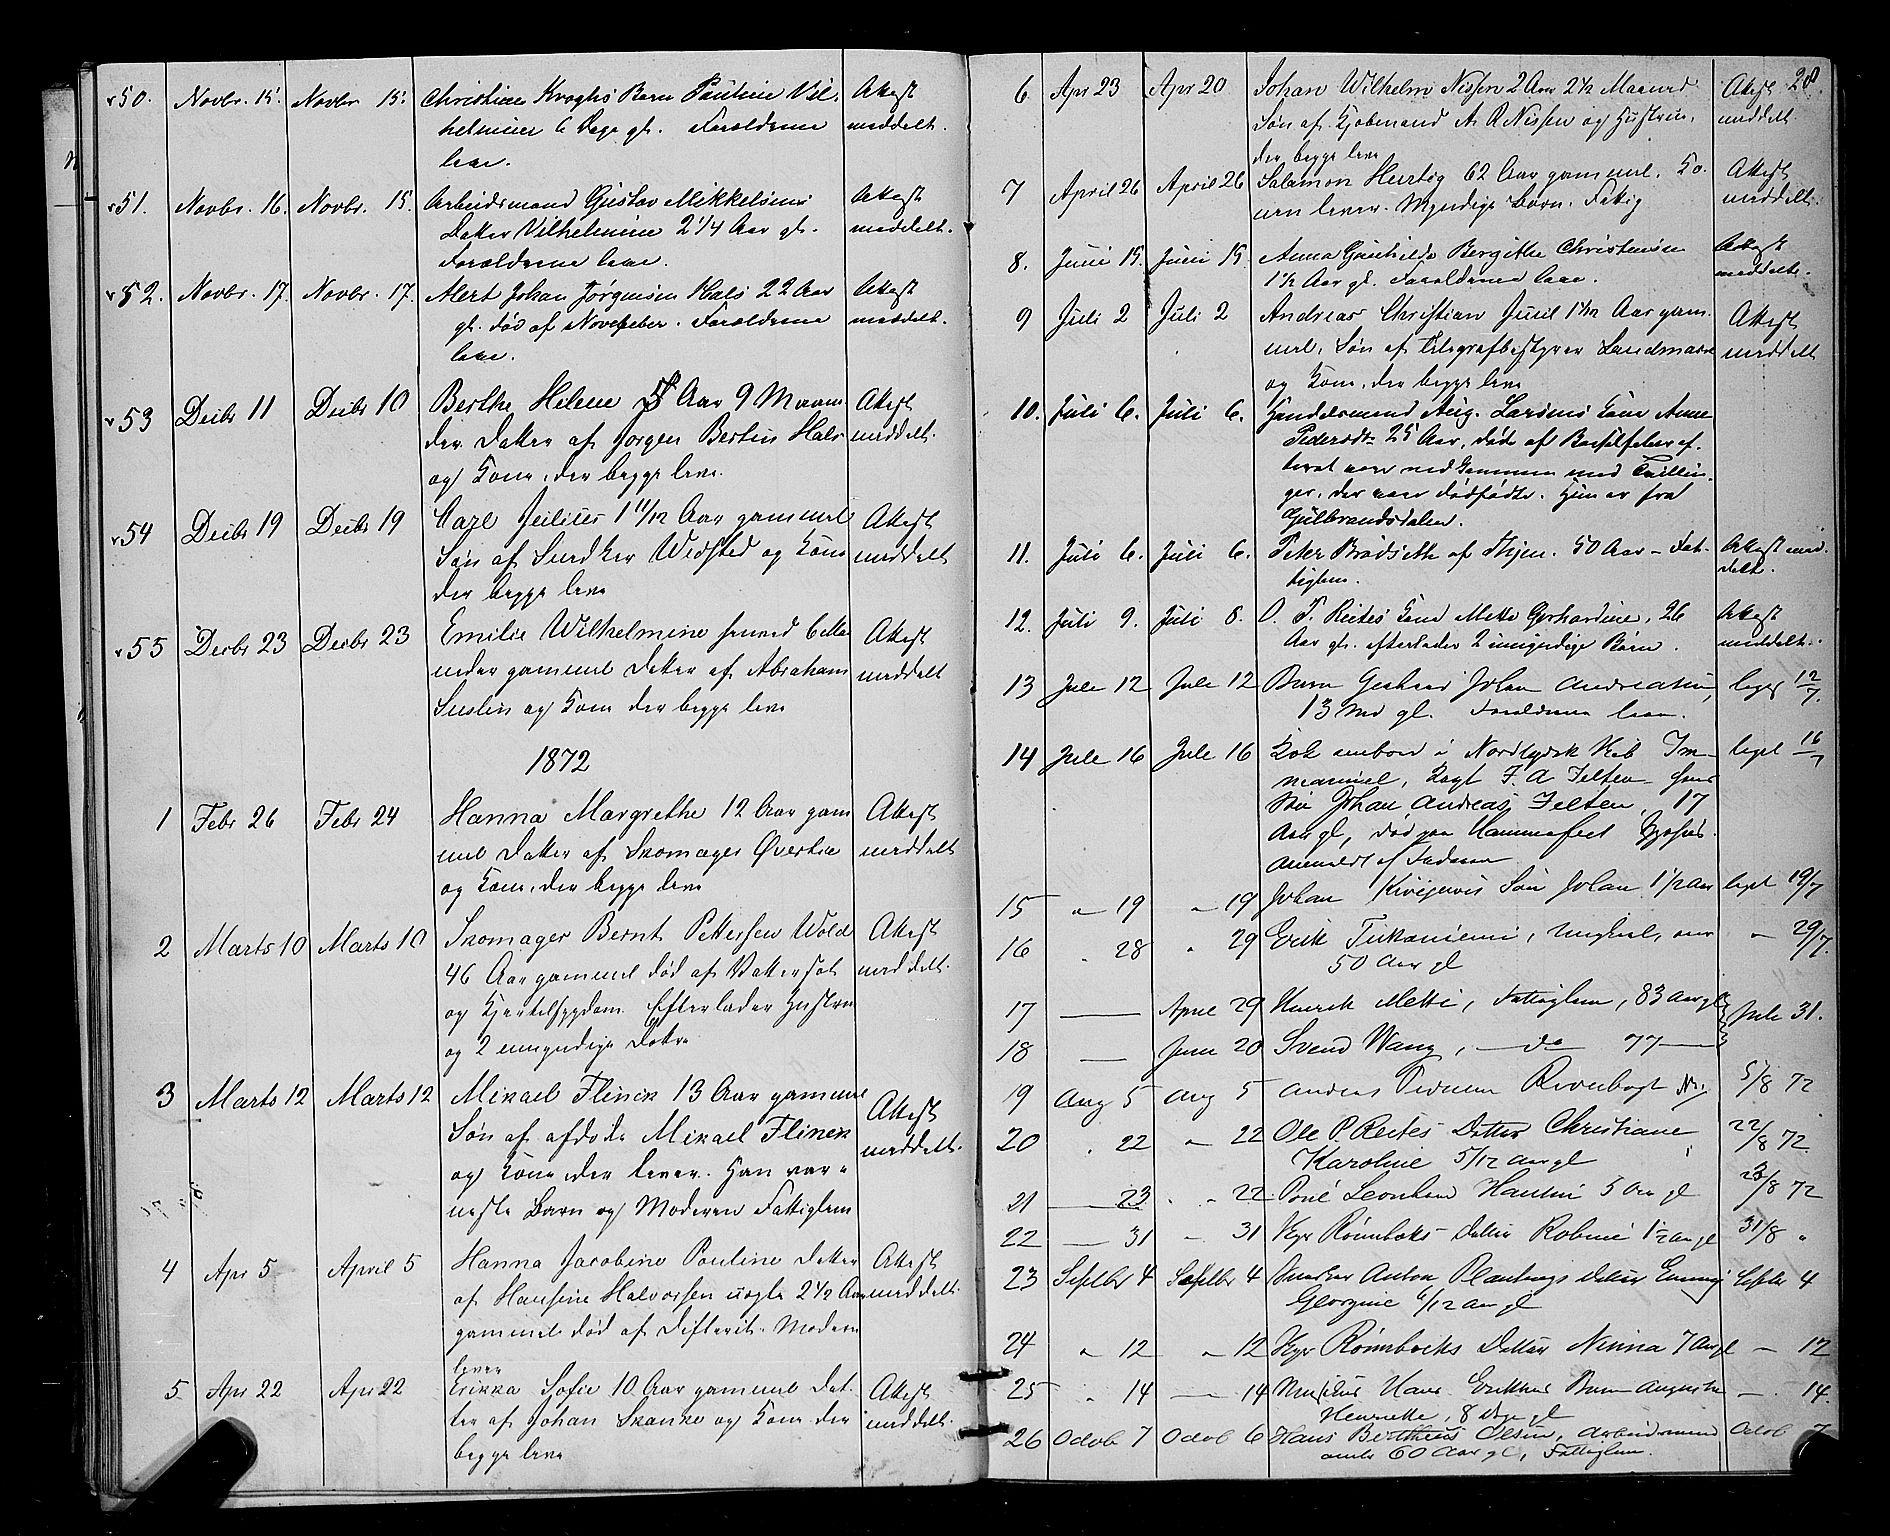 50. Novbr. 15. Novbr 15. Christine Kroghs Barn Pauline Vil- Attest
helmine 6 Dage gl. Forældrene meddelt.
leve.
51. Novbr. 16. Novbr. 15. Arbeidsmand Gustav Mikkelsens Attest
Datter Vilhelmine 2 1/4 Aar gl. meddelt.
Forældrene leve.
52. Novbr. 17. Novbr. 17. Alert Johan Jørgensen Hals 22 Aar Attest
gl. død af Forældrene meddelt.
leve.
53 Decbr 11 Decbr 10 Berthe Helene 5 Aar 9 Maane- Attest
der Datter af Jørgen Bertin Hals meddelt.
og Kone, der begge leve.
54 Decbr 19 Decbr 19 Carl Julius 1 11/12 Aar gammel Attest
Søn af Snedker Widsted og Kone meddelt
der begge leve
55 Decbr 23 Decbr 23 Emilie Wilhelmine 6 Maa- Attest
neder gammel Datter af Abraham meddelt
og Kone der begge leve
1872
1 Febr 26 Febr 24 Hanna Margrethe 12 Aar gam Attest
mel Datter af Skomager meddelt
og Kone, der begge leve
2 Marts 10 Marts 10 Skomager Bernt Pettersen Wold Attest
46 Aar gammel død af Vattersot meddelt.
og Kjertelsygdom Efterlader Hustru
og 2 umyndige Døtre
3 Marts 12 Marts 12 Mikael Flinck 13 Aar gammel Attest
Søn af afdøde Mikael Flinck meddelt.
og Kone der lever. Han var e
neste Barn og Moderen Fattiglem
4 Apr 5 April 5 Hanna Jacobine Pauline Datter Attest
af Hansine Halvorsen uægte 2 1/2 Aar meddelt.
gammel død af Difterit. Moderen
lever
5 Apr 22 Apr 22 Erikka Sofie 10 Aar gammel Dat- Attest
ter af Johan Skanke og Kone der meddelt.
begge leve
28
6 Apr 23 Apr 20 Johan Wilhelm Nissen 2 Aar 2 1/2 Maaned Attest
Søn af Kjøbmand A R Nissen og Hustru, meddelt.
der begge leve
7 April 26 April 26 Salamon Hertig 62 Aar gammel. Ko- Attest
nen lever. Myndige Børn. Fattig meddelt.
8. Juni 15. Juni 15. Anna Gunhilde Bergithe Christensen Attest
1 1/2 Aar gl. Forældrene leve. meddelt.
9 Juli 2 Juli 2 Andreas Christian Juul 1 Aar gam- Attest
mel, Søn af Telegrafbestyrer Landmark meddelt
og Kone, der begge leve
10. Juli 6. Juli 6. Handelsmand Aug. Larsens Kone Anne
Pedersdr 25 Aar, døde af Barselfeber ef-
terat være nedkommen med Tvillin-
ger, der vare dødfødte. Hun er fra
Gulbrandsdalen.
11. Juli 6. Juli 6. Peter Brødseth af 50 Aar - Fat- Attest med-
tiglem. delt.
12. Juli 9. Juli 8. O. P. Reites Kone Mette Gerhardine, 26 Attest
Aar gl. efterlader 2 umyndige Børn. meddelt.
13 Jule 12 Jule 12 Barn Johan 12/7
13 Md gl. Forældrene leve.
14 Jule 16 Jule 16 Kok ombord i Nordtydsk Skib Im- 16/7
manuel, Kapt F. A Jelten
Søn Johan Andreas Jelten, 17
Aar gl, død paa Hammerfest
anmeldt af Faderen
15 " 19 " 19 Johan Søn Johan 1 1/2 Aar 19/7
16 " 28 " 29 Erik , Ungkarl, 29/7.
50 Aar gl
17 — April 29 Henrik Metti, Fattiglem, 83 Aar gl
Jule 31.
18 — Juni 20 Svend Wang, — do — 77 —
19 Aug 5 Aug 5 Anders 5/8 72
20 " 22 " 22 Ole P. Reites Datter Christiane 22/8 72
Karoline 5/12 Aar gl
21 — 23 " 22 5 Aar gl 23/8 72
22 — 31 " 31 Datter 1 1/2 Aar gl 31/8 "
23 Septbr 4 Septbr 4 Anton Datter Septbr 4
Georgine 6/12 Aar gl
24 " 12 " 12 Datter Ninna 7 Aar gl — 12
25 " 14 — 14 Hans Barn — 14.
Henriette, 8 Dage gl
26 Octob 7 Octob 6 Hans Olsen, Arbeidsmand Octob 7
60 Aar gl, Fattiglem.